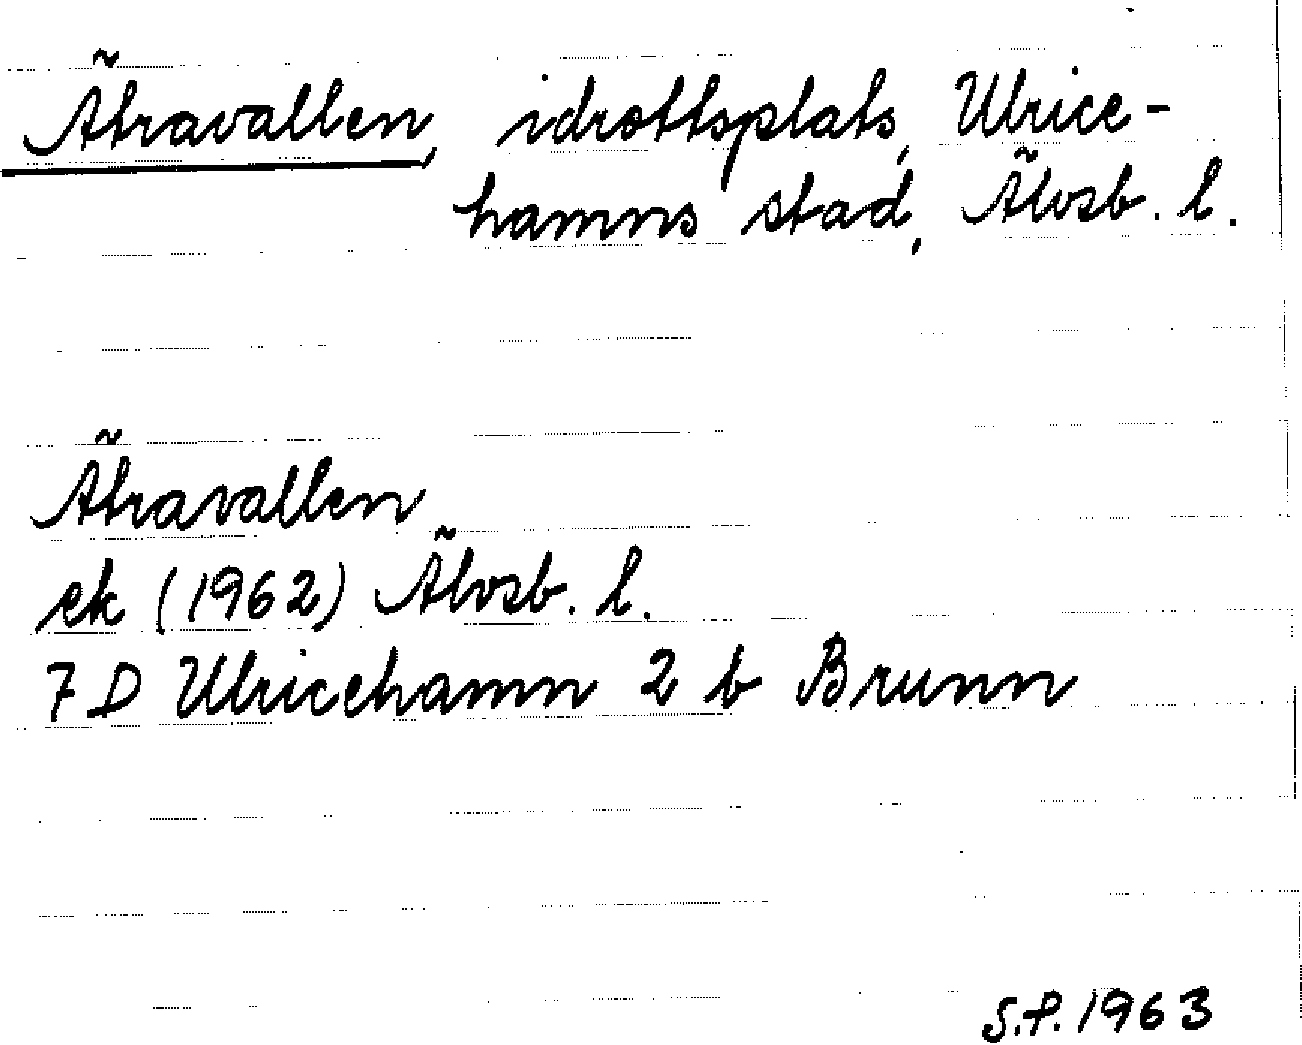 Ätravallen, idrottsplats, Ulrice-
hamns stad, Älvsb. l.
Ätravallen
ek (1962) Älvsb. l.
7 D Ulricehamn 2 b Brunn
S.P. 1963